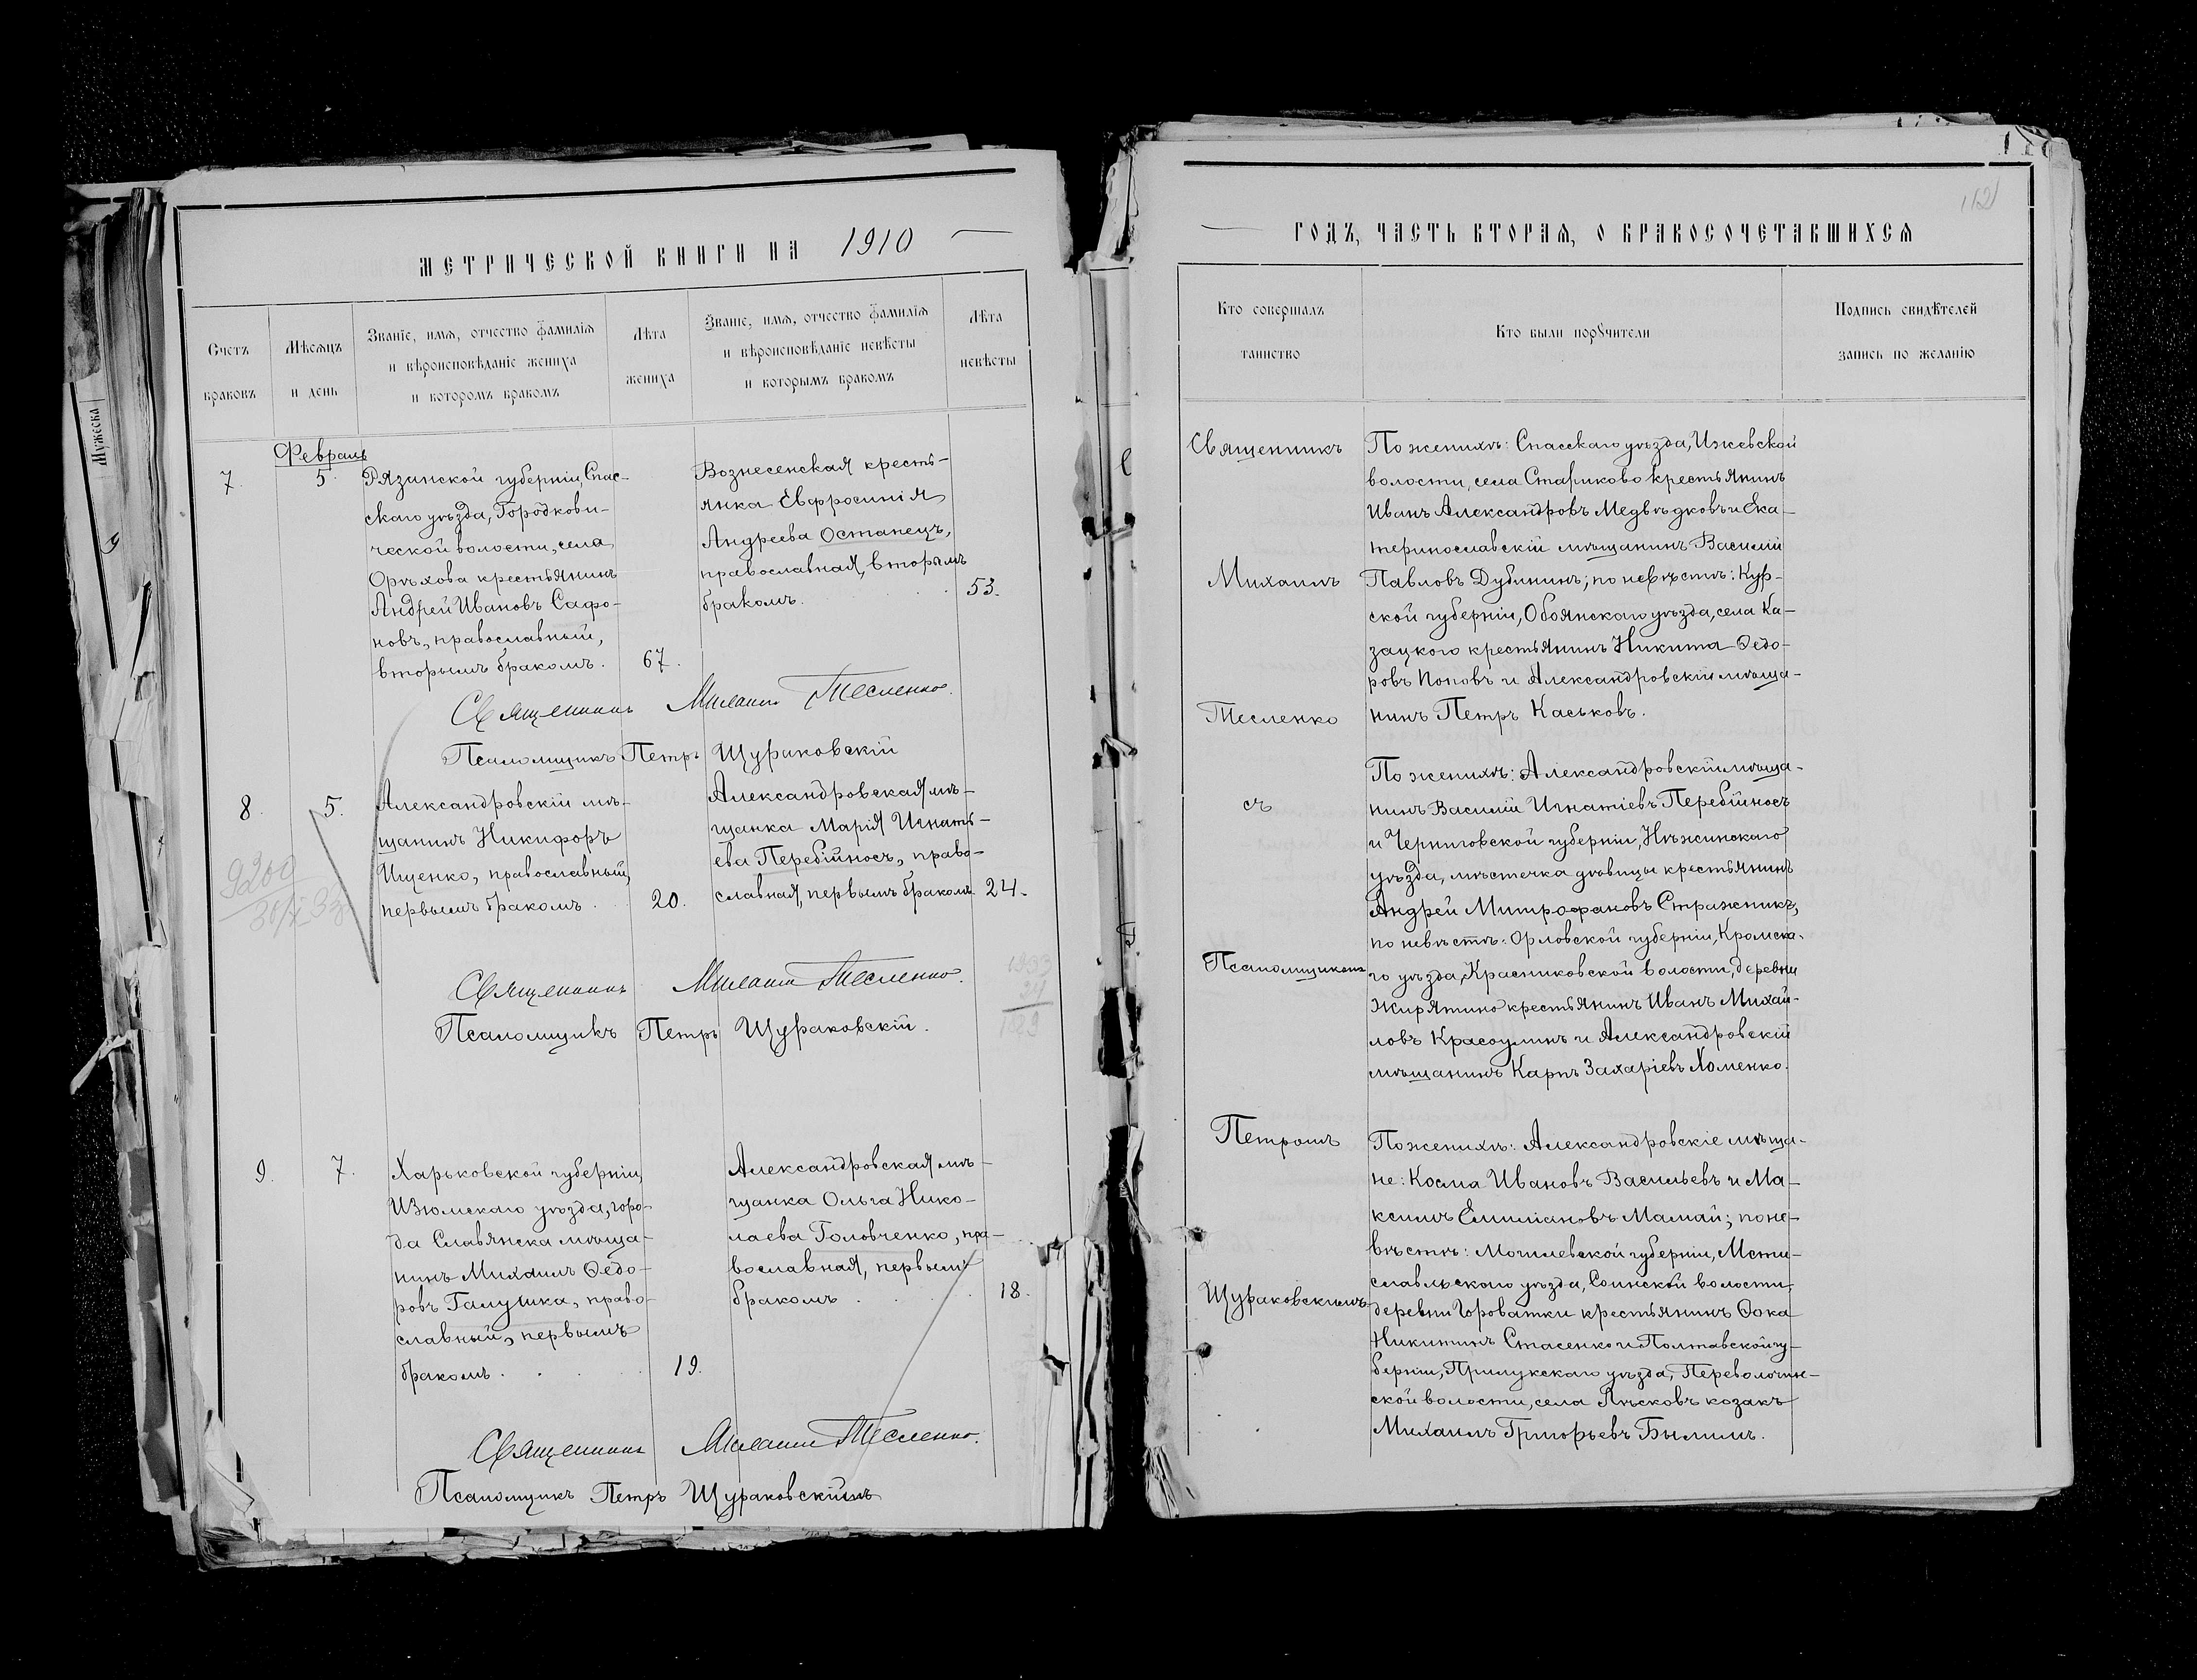 МЕТРИЧЕСКОЙ КНИГИ НА 1910
Счетъ браковъ
Мѣсяцъ и день
Званіе, имя, отчество фамилія
и вѣроисповѣданіе жениха
и которомъ бракомъ
Лѣта
жениха
Званіе, имя, отчество фамилія
и вѣроисповѣданіе невѣсты
и которымъ бракомъ
Лѣта
невѣсты
Февраль
7.
5.
Рязанской губерніи, Спас-
скаго уѣзда, Городкови-
ческой волости, села
Орѣхова крестьянинъ
Андрей Ивановъ Сафо-
новъ, православный,
вторымъ бракомъ.
67.
Вознесенская кресть-
янка Евфросинія
Андреева Останецъ,
православная, вторымъ
бракомъ.
53.
Священникъ Михаилъ Тесленко.
Псаломщикъ Петръ Щураковскій
8.
5.
Александровскій мѣ-
щанинъ Никифоръ
Ищенко, православный,
первымъ бракомъ.
20.
Александровская мѣ-
щанка Марія Игнать-
ева Перебійносъ, право-
славная, первымъ бракомъ.
24.
Священникъ Михаилъ Тесленко.
Псаломщикъ Петръ Щураковскій.
9.
7.
Харьковской губерніи,
Изюмскаго уѣзда, горо-
да Славянска мѣща-
нинъ Михаилъ Ѳедо-
ровъ Галушка, право-
славный, первымъ
бракомъ.
19.
Александровская мѣ-
щанка Ольга Нико-
лаева Головченко, пра-
вославная, первымъ
бракомъ
18.
Священникъ Михаилъ Тесленко.
Псаломщикъ Петръ Щураковскій
Мужеска
112
ГОДЪ, ЧАСТЬ ВТОРАЯ, О БРАКОСОЧЕТАВШИХСЯ
Кто совершалъ
таинство
Кто были поручители
Подпись свидѣтелей
запись по желанію
Священникъ
Михаилъ
Тесленко
съ
Псаломщикомъ
Петромъ
Щураковскимъ
По женихѣ: Спасскаго уѣзда, Ижевской
волости, села Стариково крестьянинъ
Иванъ Александровъ Медвѣдковъ и Ека-
теринославскій мѣщанинъ Василій
Павловъ Дубининъ; по невѣстѣ: Кур-
ской губерніи, Обоянскаго уѣзда, села Ка-
зацкого крестьянинъ Никита Ѳедо-
ровъ Поповъ и Александровскій мѣща-
нинъ Петръ Каськовъ.
По женихѣ: Александровскій мѣща-
нинъ Василій Игнатіевъ Перебійносъ
и Черниговской губерніи, Нѣжинскаго
уѣзда, мѣстечка дѣвицы крестьянинъ
Андрей Митрофановъ Стражникъ,
по невѣстѣ: Орловской губерніи, Кромска-
го уѣзда, Красниковской волости, деревни
Жирятино крестьянинъ Иванъ Михай-
ловъ Красоулинъ и Александровскій
мѣщанинъ Карпъ Захаріевъ Хоменко.
По женихѣ: Александровскіе мѣща-
не: Косма Ивановъ Васильевъ и Ма-
ксимъ Емиліановъ Мамай; по не-
вѣстѣ: Могилевской губерніи, Мсти-
славльскаго уѣзда, Соинской волости,
деревни Гороватки крестьянинъ Ѳока
Никитинъ Стасенко и Полтавской гу-
берніи, Прилукскаго уѣзда, Переволочин-
ской волости, села Лѣсковъ козакъ
Михаилъ Григорьевъ Былимъ.